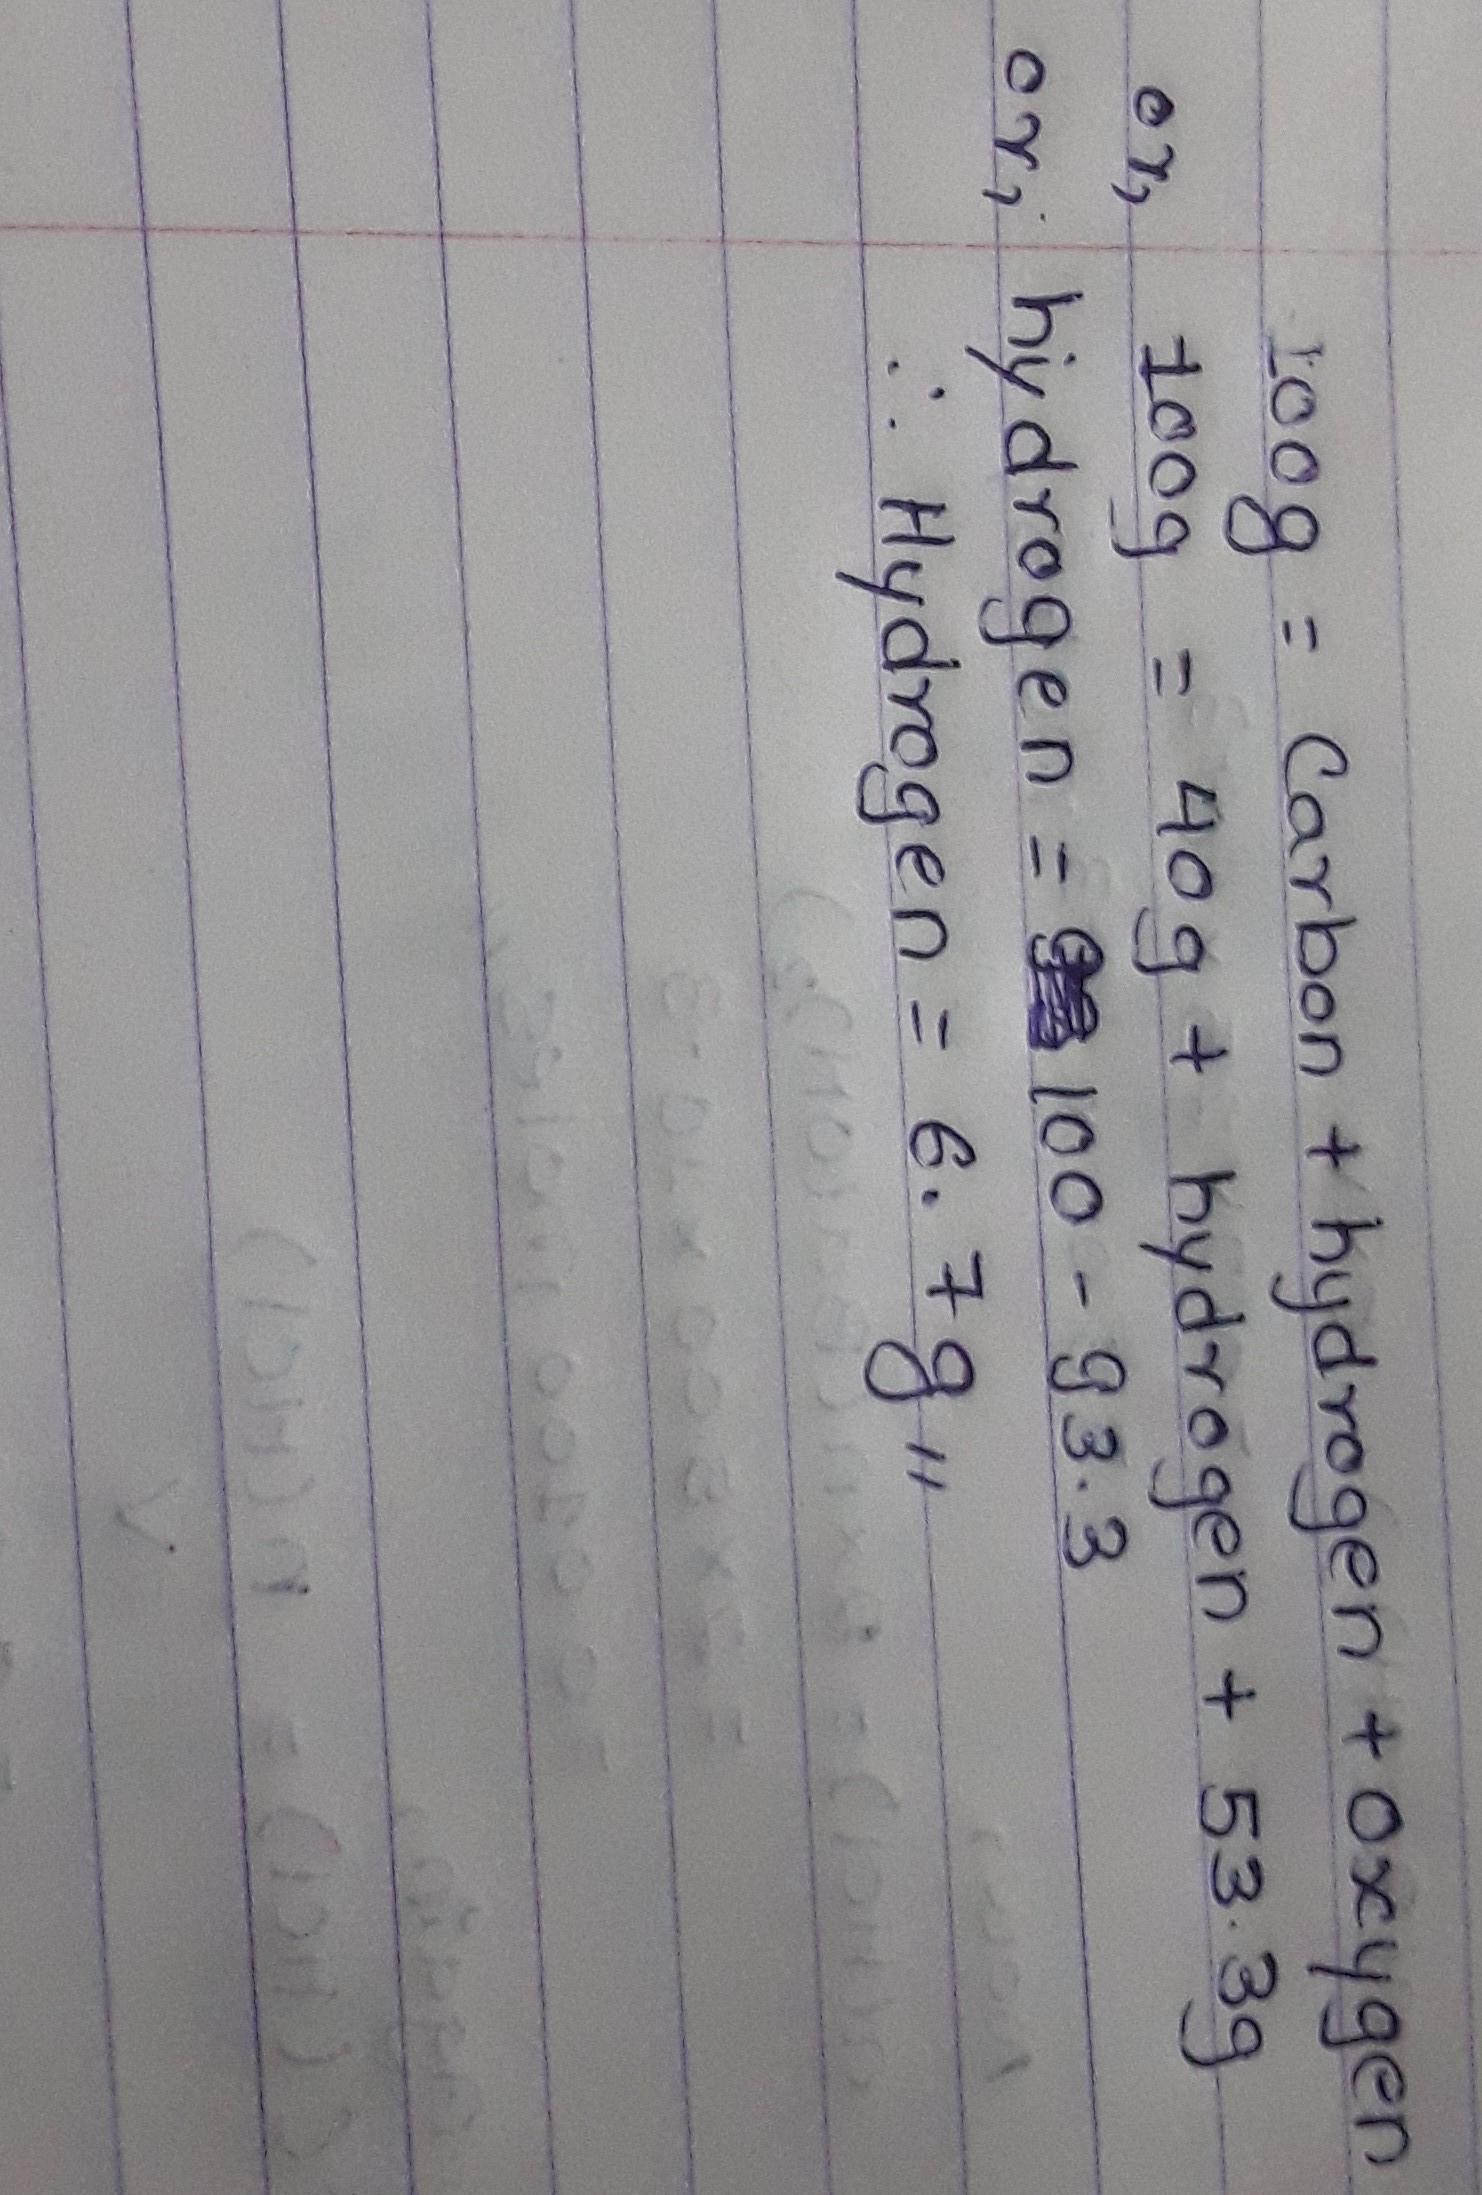 100g = Carbon + hydrogen + oxygen
or, 100g = 40g + hydrogen + 53.3g
or, hydrogen = 100 - 93.3
∴ Hydrogen = 6.7g "